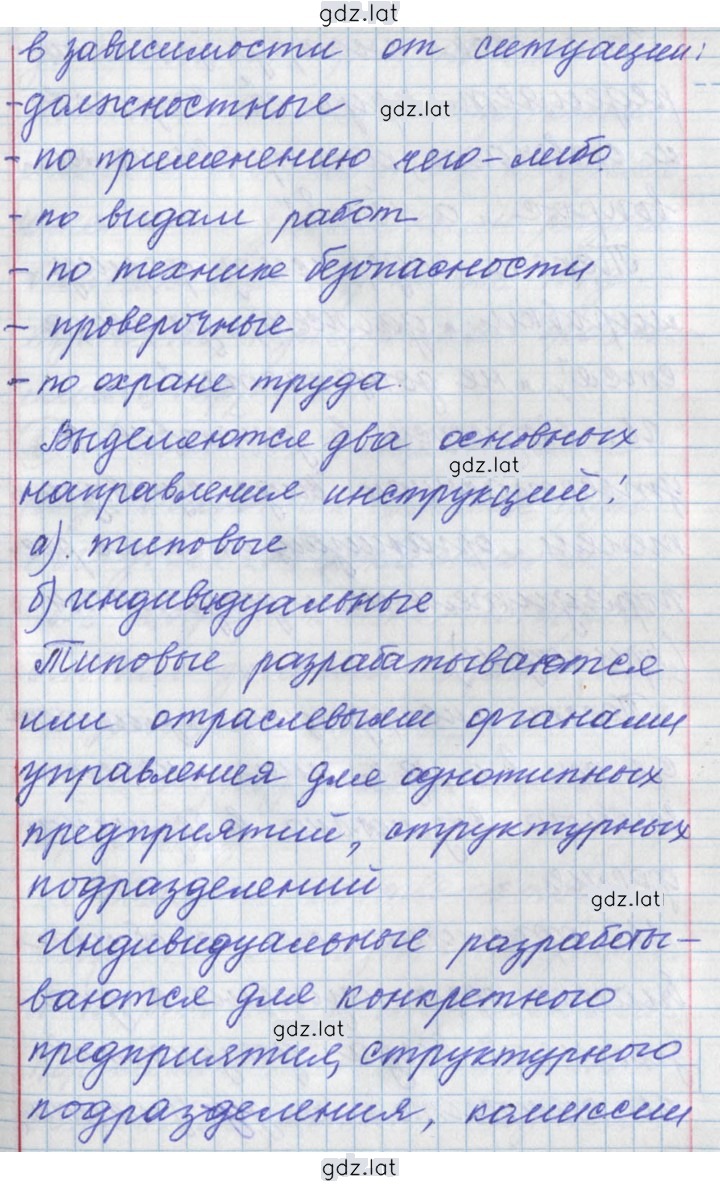 gdz.lat
в зависимости от ситуации:
-должностные
gdz.lat
- по применению чего-либо
- по видам работ
- по технике безопасности
gdz.lat
- проверочные
- по охране труда.
Выделяются два основных
gdz.lat
направления инструкций:
а). типовые
б) индивидуальные
Типовые разрабатываются
или отраслевыми органами
управления для однотипных
предприятий, структурных
подразделений
gdz.lat
Индивидуальные разрабаты-
ваются для конкретного
gdz.lat
предприятия, структурного
подразделения, комиссии
gdz.lat